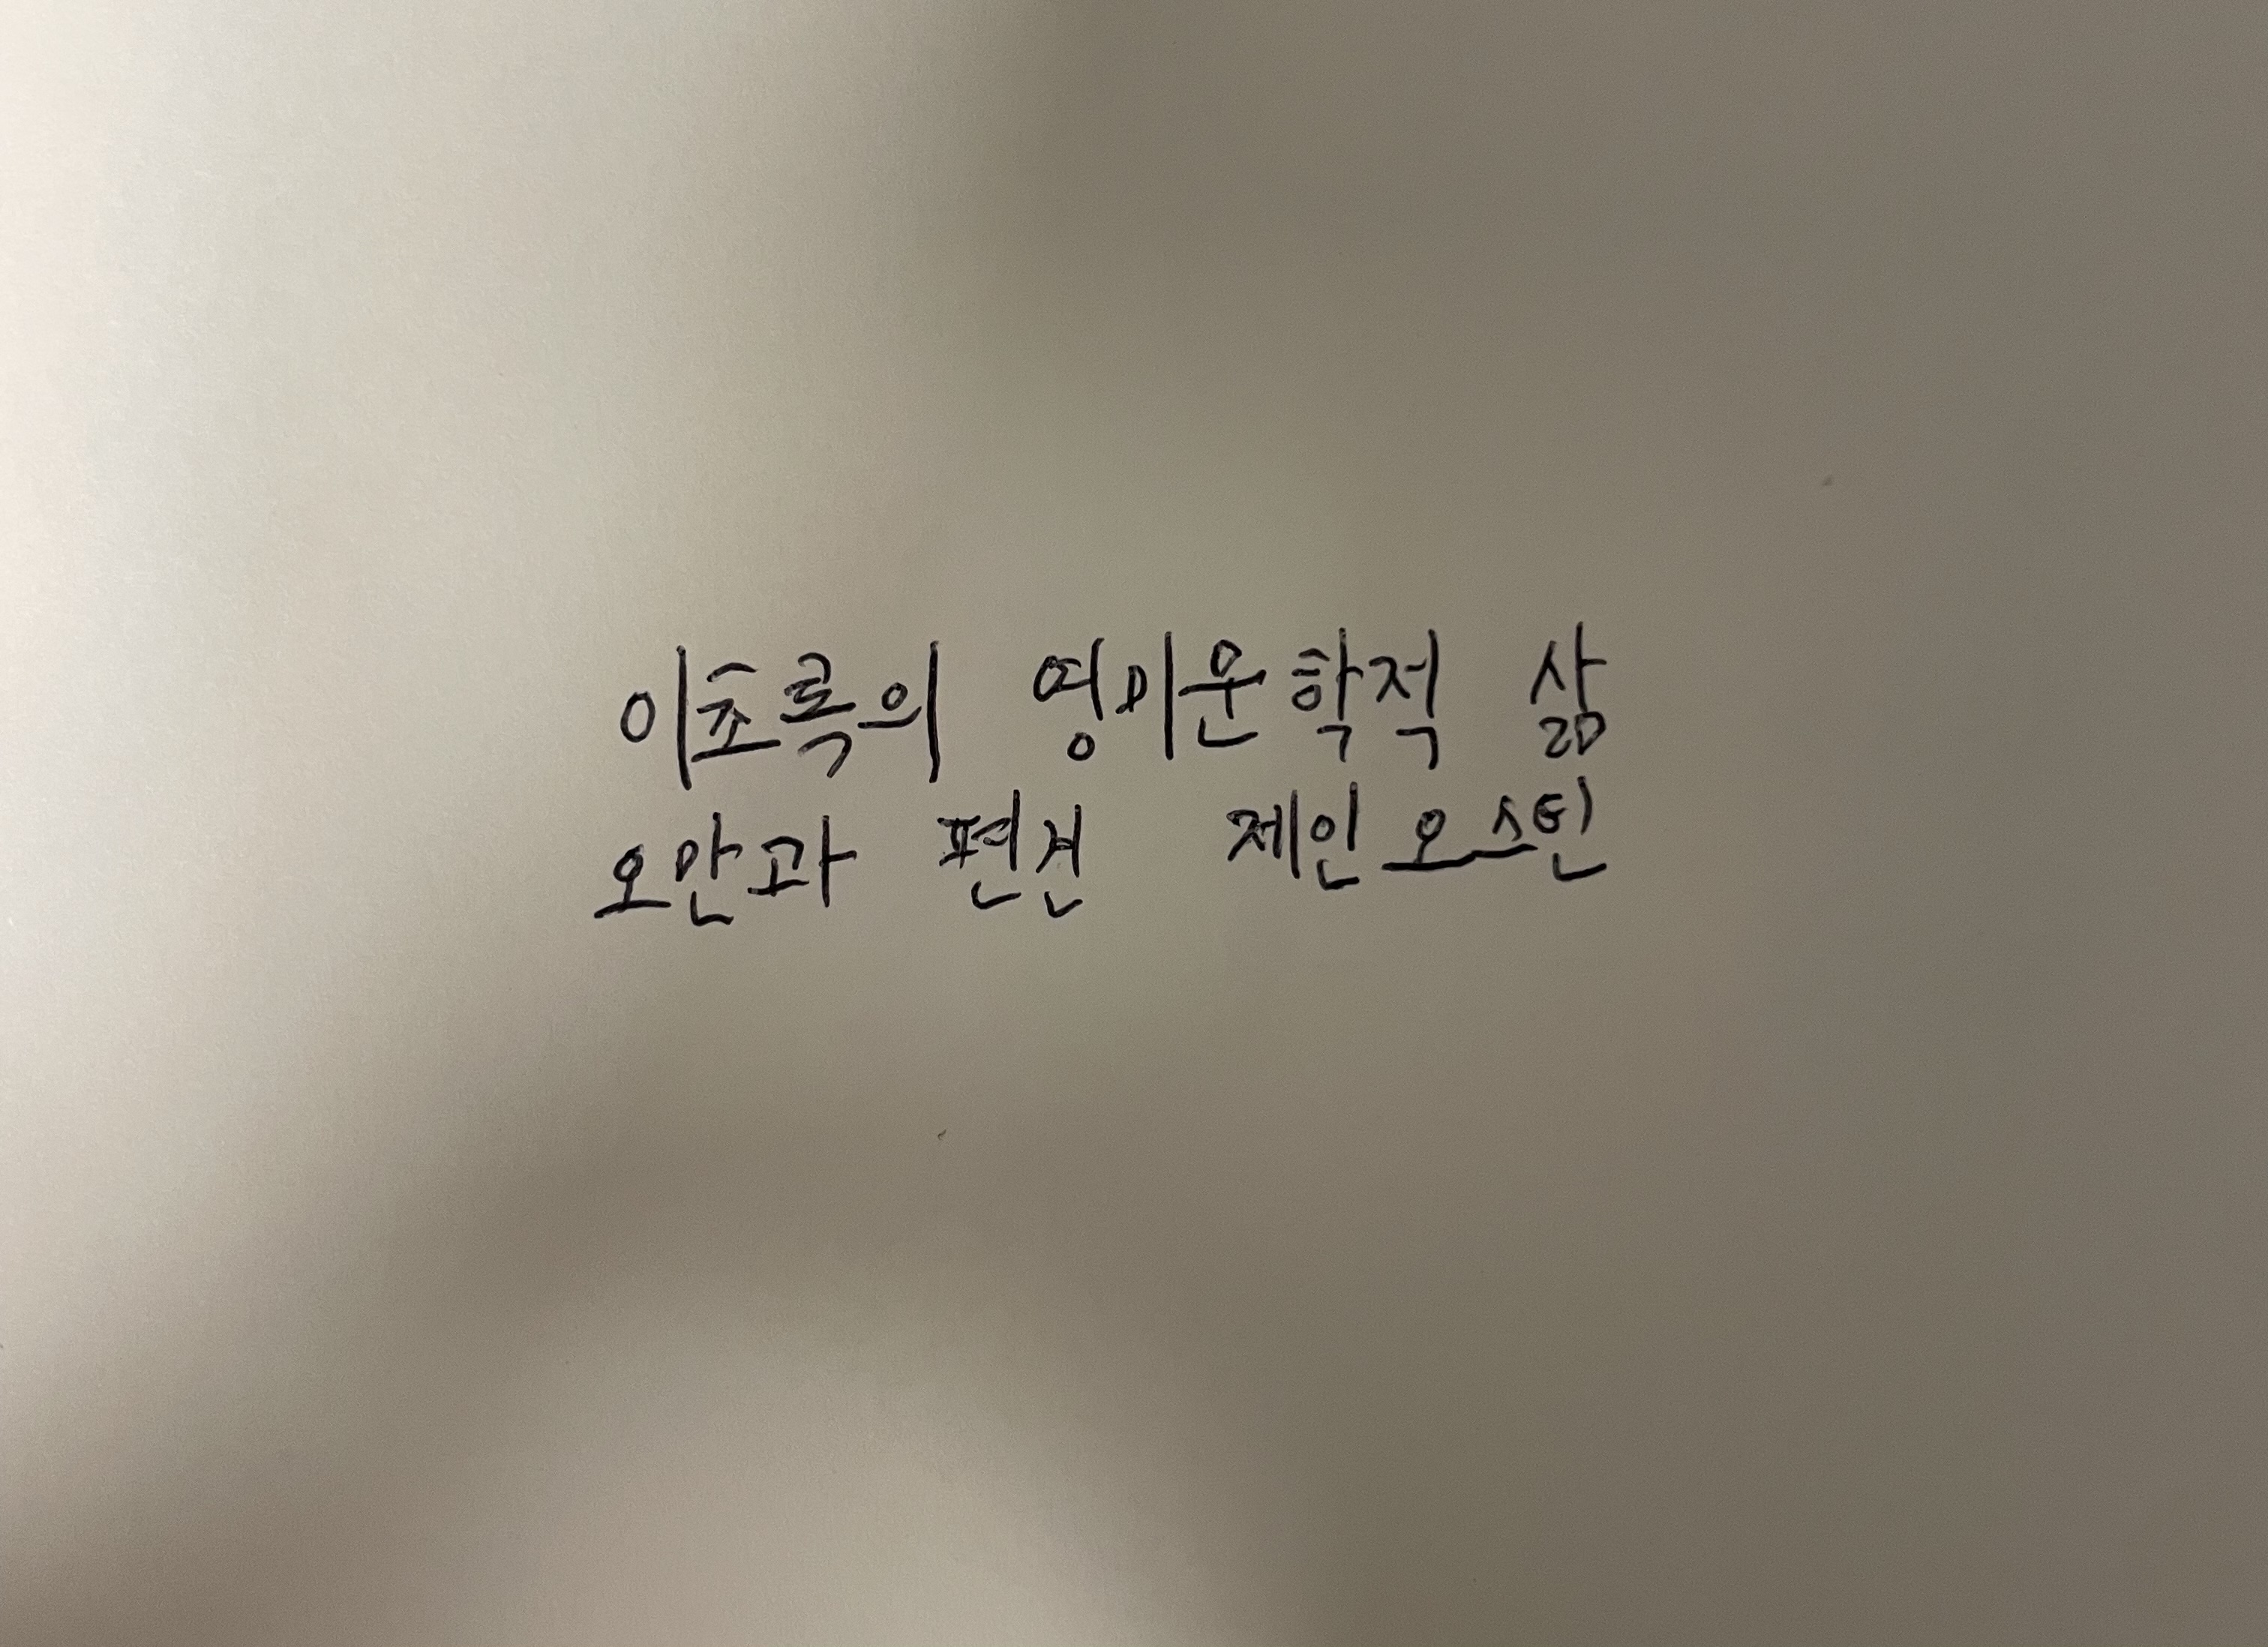 이초록의 영미문학적 삶
오만과 편견 제인오스틴